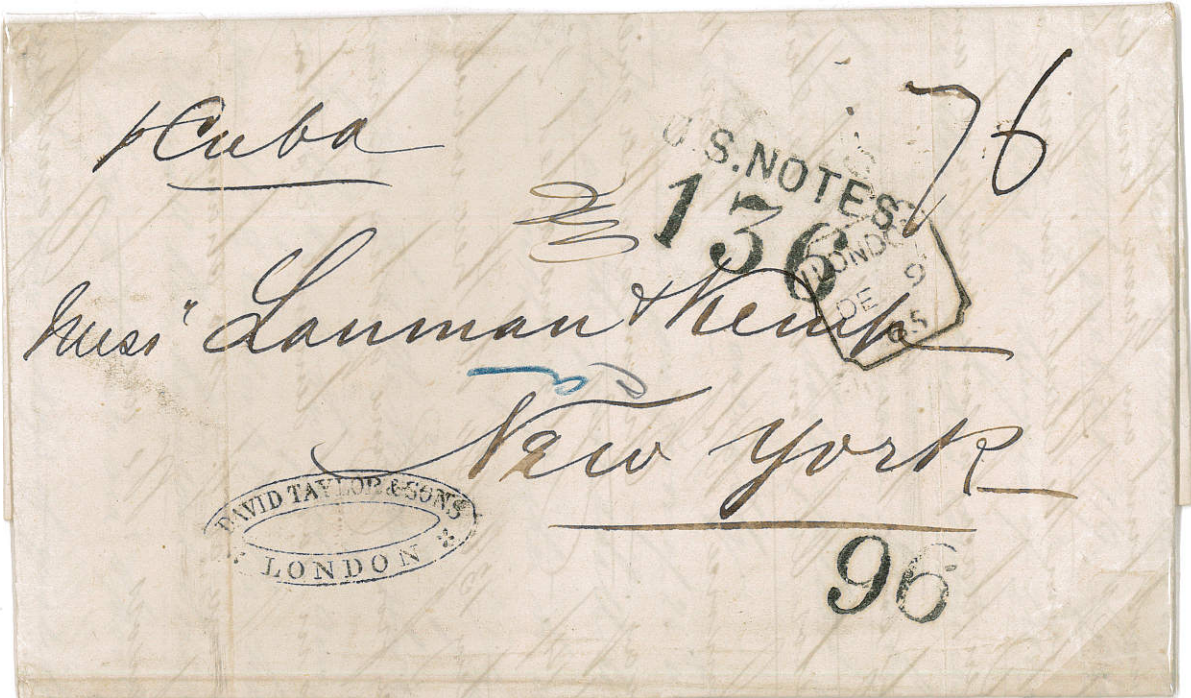 p Cuba
76
U.S. NOTES
136
LONDON
DE 9
65
Mess" Lanman & Kemp
New York
DAVID TAYLOR & SONS
LONDON
96